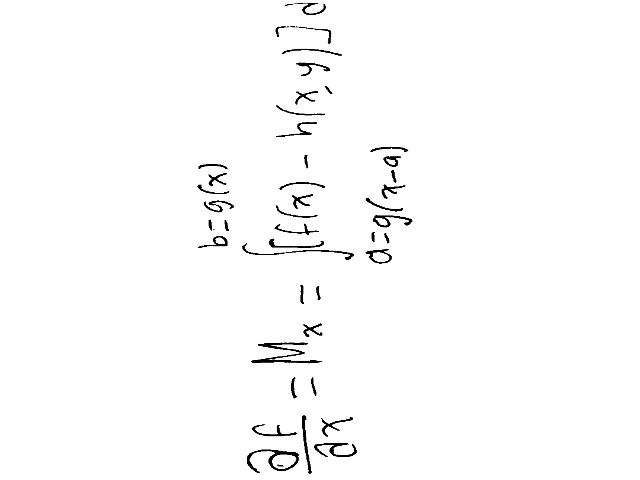 ∂f/∂x = M_x = ∫_{a=g(x-a)}^{b=g(x)} [f(x) - h(x,y)] d